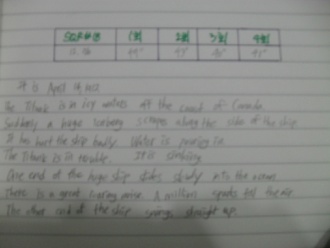 It is April 14, 1912
The Titanic is in icy waters off the coast of Canada.
Suddenly a huge iceberg scrapes along the side of the ship.
It has hurt the ship badly. Water is pouring in.
The Titanic is in trouble. It is sinking.
One end of the huge ship slides slowly into the ocean.
There is a great roaring noise. A million sparks fill the air.
The other end of the ship swings straight up.